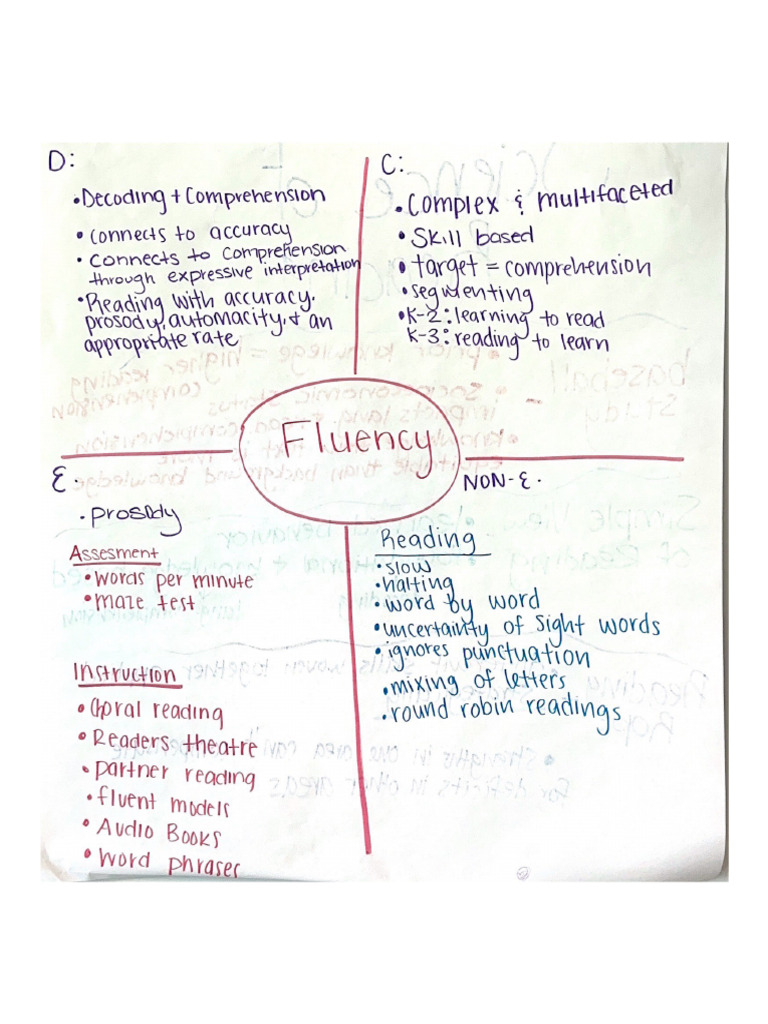 D:
•Decoding + Comprehension
• Connects to accuracy
• Connects to Comprehension
through expressive interpretation
•Reading with accuracy,
prosody, automacity, & an
appropriate rate
C:
•Complex & multifaceted
•Skill based
•target = comprehension
•segmenting
•K-2: learning to read
K-3: reading to learn
Fluency
E.
•prosody
Assesment
•words per minute
•maze test
Instruction
•Choral reading
•Readers theatre
•partner reading
•fluent models
•Audio Books
•Word phrases
NON-E.
Reading
•slow
•halting
•word by word
•uncertainty of sight words
•ignores punctuation
•mixing of letters
•round robin readings